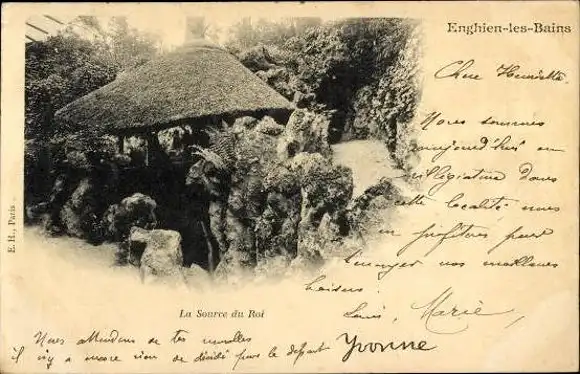 Enghien-les-Bains
Chère Henriette.
Nous sommes
aujourd'hui en
villégiature dans
cette localité nous
en profitons pour
envoyer nos meilleurs
baisers.
Louis, Marie
Yvonne
La Source du Roi
E. H., Paris
Nous attendons de tes nouvelles
il n'y a encore rien de décidé pour le départ